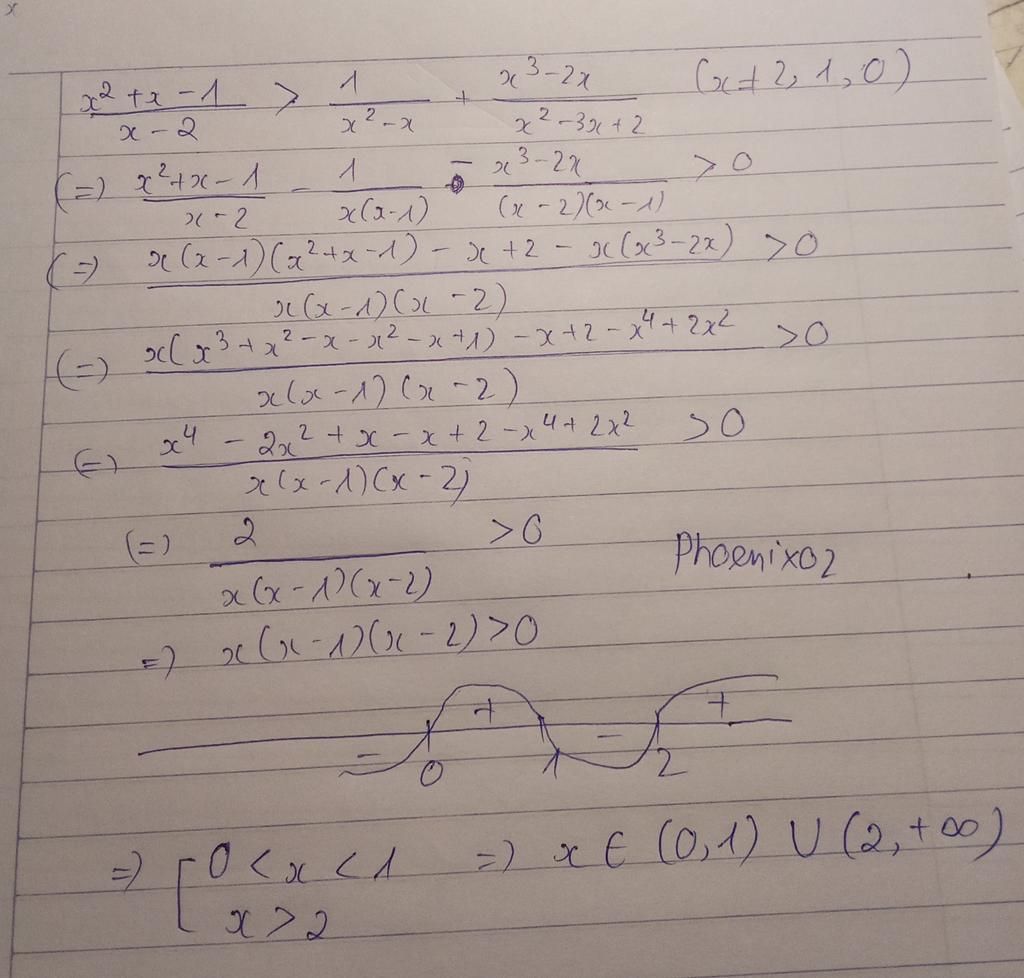 x
(x²+x-1)/(x-2) > 1/(x²-x) + (x³-2x)/(x²-3x+2) (x≠2,1,0)
(=) (x²+x-1)/(x-2) - 1/(x(x-1)) - (x³-2x)/((x-2)(x-1)) >0
(=) (x(x-1)(x²+x-1) - x+2 - x(x³-2x))/(x(x-1)(x-2)) >0
(=) (x(x³+x²-x-x²-x+1) -x+2-x⁴+2x²)/(x(x-1)(x-2)) >0
(=) (x⁴ - 2x²+x-x+2-x⁴+2x²)/(x(x-1)(x-2)) >0
(=) 2/(x(x-1)(x-2)) >0
Phoenix02
=) x(x-1)(x-2)>0
- + - +
0 1 2
=) [ 0<x<1 =) x∈(0,1) ∪ (2,+∞)
x>2